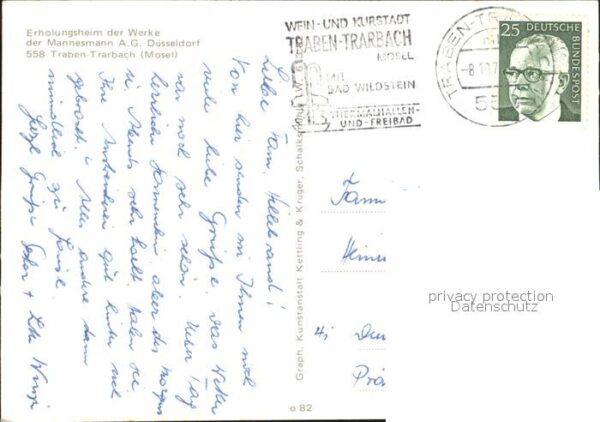 Erholungsheim der Werke
der Mannesmann A.G. Düsseldorf
558 Traben-Trarbach (Mosel)
WEIN- UND KURSTADT
TRABEN-TRARBACH
MOSEL
MIT
BAD WILDSTEIN
THERMALHALLEN-
UND FREIBAD
TRABEN-TRA
-8.10.7
55
25
DEUTSCHE
BUNDESPOST
Liebe Fam. Hillebrand!
Von hier senden wir Ihnen noch
viele liebe Grüße. Das Wetter
war noch sehr schön. Unter Tag
herrlicher Sonnenschein aber des Morgens
u. Abends sehr kalt. Haben Sie
Ihre gut hinter sich
gebracht? Alles andere dann
mündlich zu Hause.
Herzl. Grüße
Graph. Kunstanstalt Kettling & Krüger, Schalksmühle i.W.
o 82
Fam
Heinr
41
Prä
privacy protection
Datenschutz